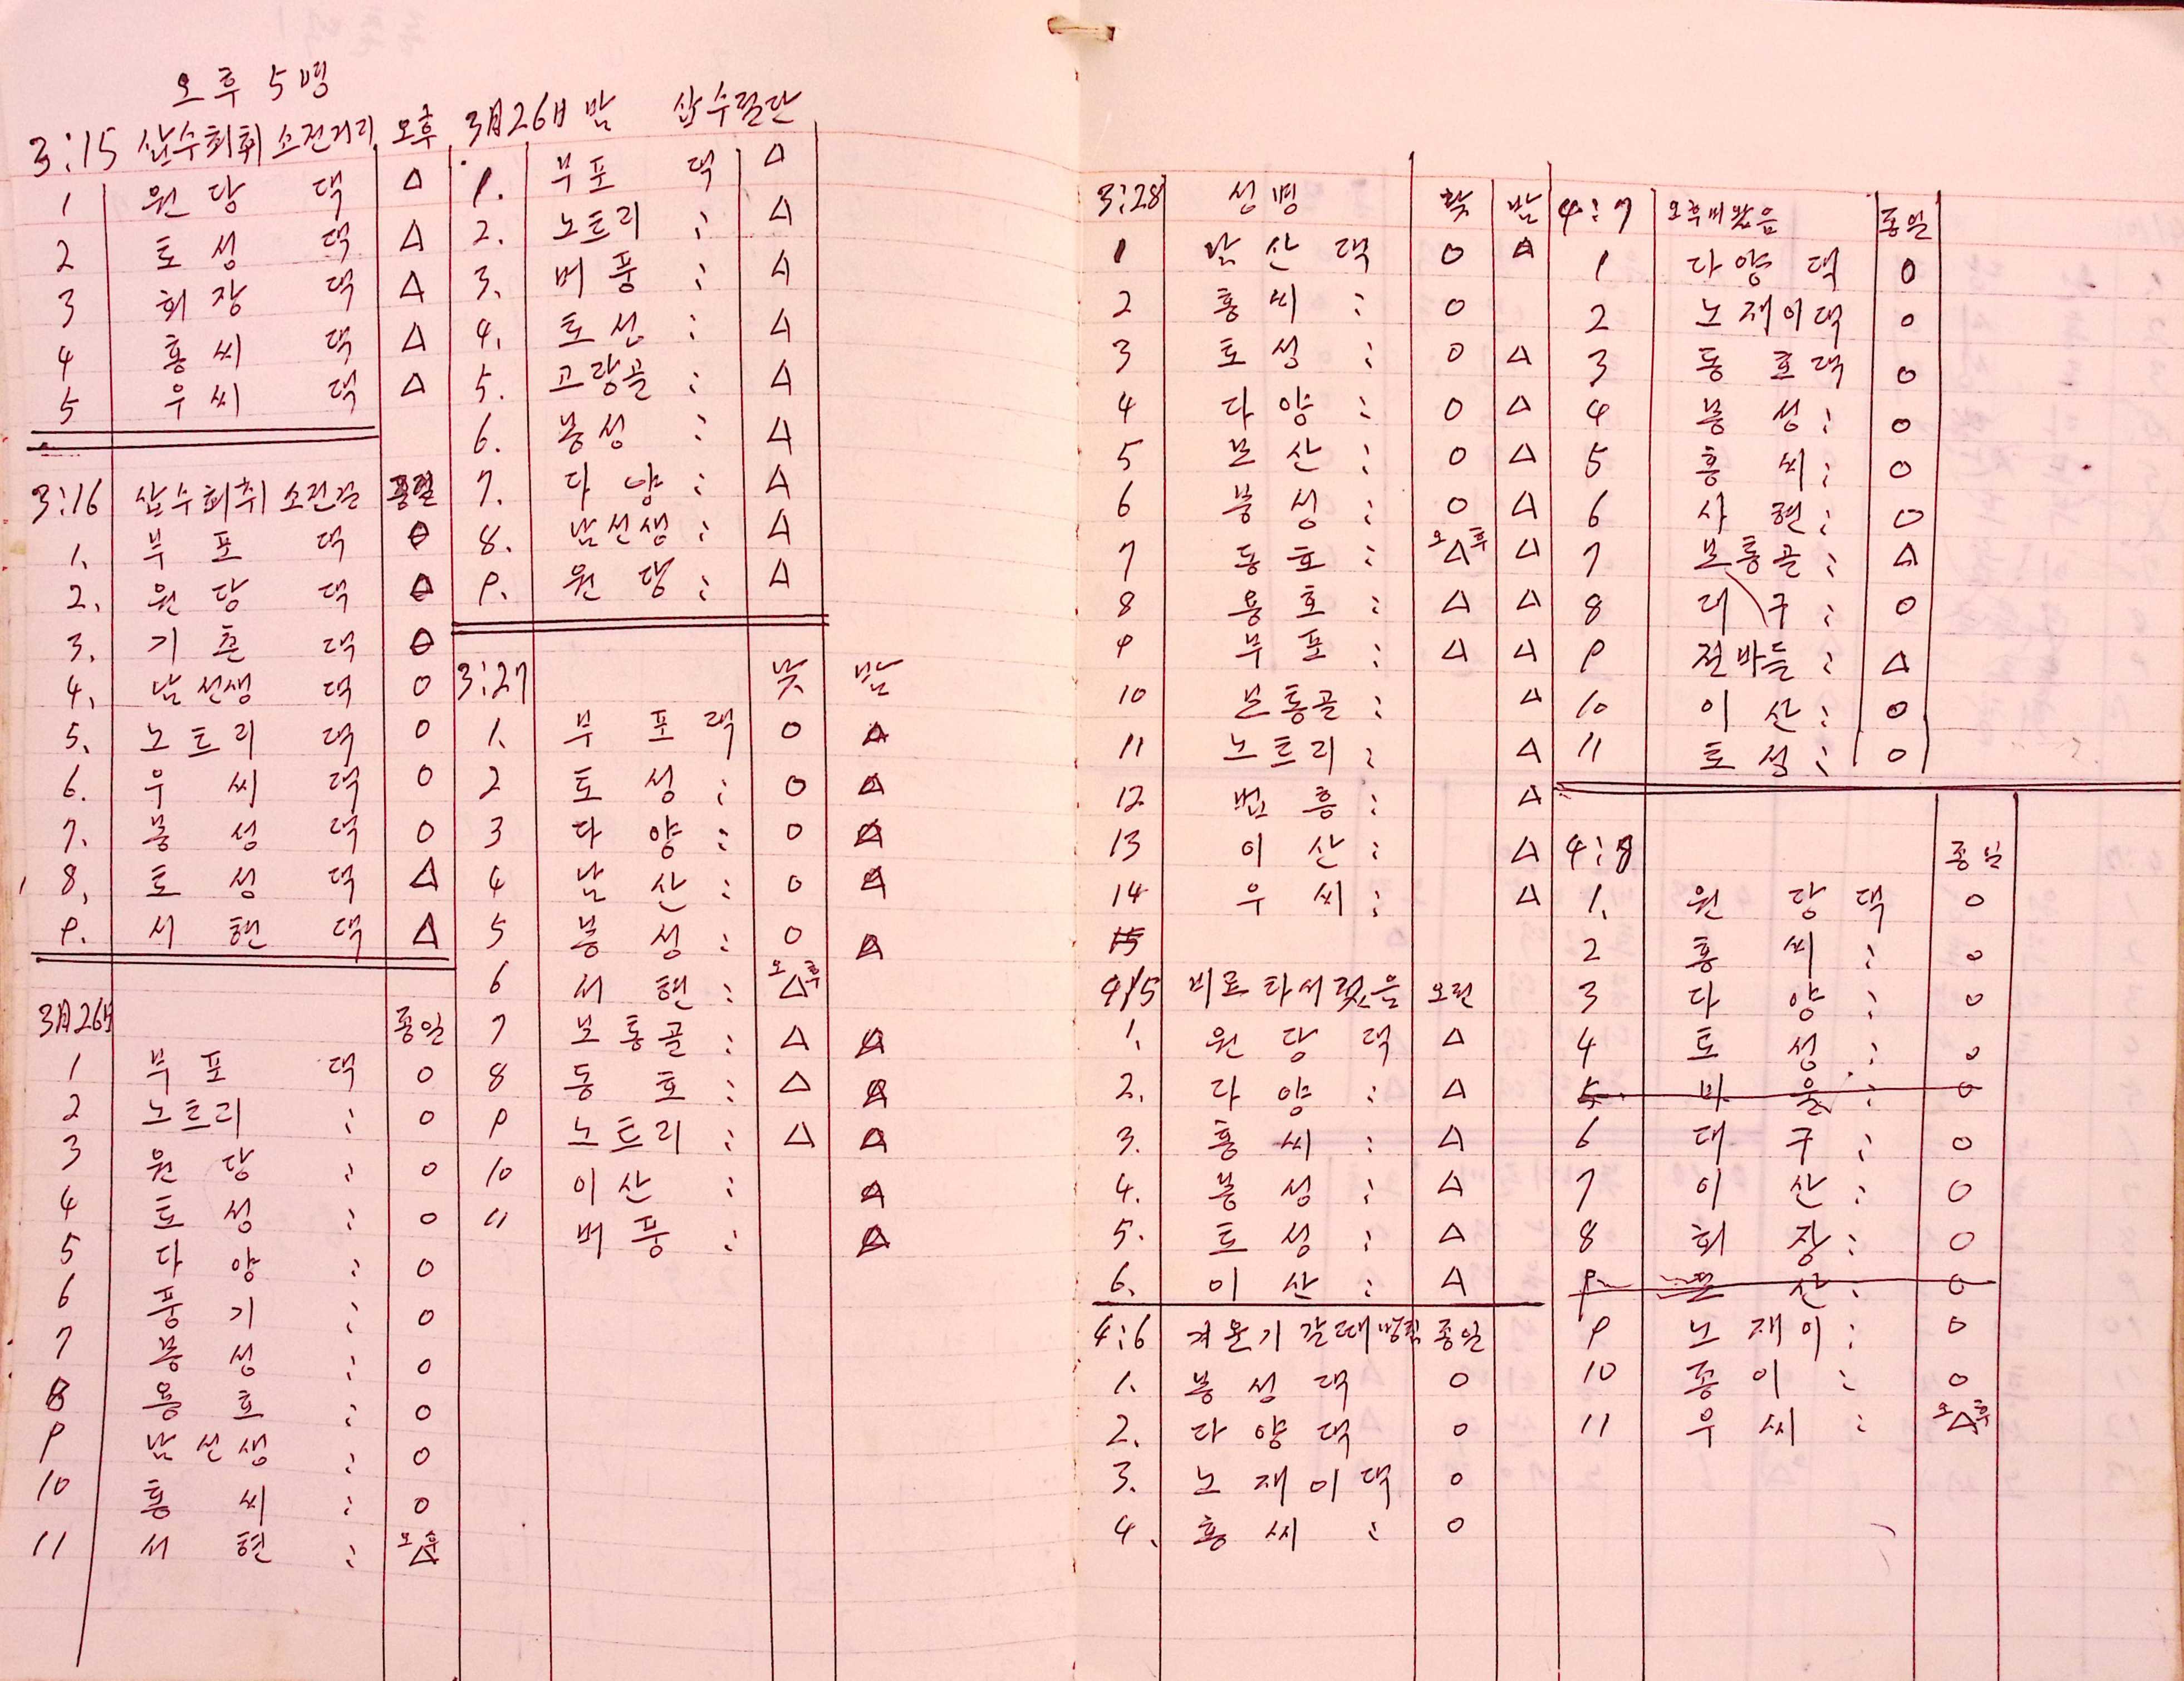 오후 5명
3:15 삽수취취 소건거리 오후
1 원당 댁 △
2 토성 댁 △
3 회장 댁 △
4 홍씨 댁 △
5 우씨 댁 △
3:16 삽수취취 소건
1. 부포 댁
2. 원당 댁
3. 기촌 댁
4. 남선생 댁 O
5. 노트리 댁 O
6. 우씨 댁 O
7. 봉성 댁 O
8. 토성 댁 △
9. 서현 댁 △
3月26日 종일
1 부포 댁 O
2 노트리 : O
3 원당 : O
4 토성 : O
5 다양 : O
6 풍기 : O
7 봉성 : O
8 용호 : O
9 남선생 : O
10 홍씨 : O
11 서현 : 오후 △
3月26日 밤 삽수절단
1. 부포 댁 △
2. 노트리 : △
3. 버풍 : △
4. 토성 : △
5. 고랑골 : △
6. 봉성 : △
7. 다양 : △
8. 남선생 : △
9. 원당 : △
3:27 낮 밤
1. 부포댁 O △
2 토성 : O △
3 다양 : O △
4 남산 : O △
5 봉성 : O △
6 서현 : 오후 △
7 보통골 : △ △
8 동호 : △ △
9 노트리 : △ △
10 이산 : △
11 버풍 : △
3:28 성명 낮 밤
1 남산댁 O △
2 홍씨 : O
3 토성 : O △
4 다양 : O △
5 모산 : O △
6 봉성 : O △
7 동호 : 오후 △ △
8 용호 : △ △
9 부포 : △ △
10 보통골 : △
11 노트리 : △
12 번흥 : △
13 이산 : △
14 우씨 : △
15
4/5 비로 타서 못음 오전
1. 원당댁 △
2. 다양 : △
3. 홍씨 : △
4. 봉성 : △
5. 토성 : △
6. 이산 : △
4:6 겨운기 갈때 종일
1. 봉성댁 O
2. 다양댁 O
3. 노재이댁 O
4. 홍씨 : O
4:7 오후비왔음 종일
1 다양댁 O
2 노재이댁 O
3 동호댁 O
4 봉성 : O
5 홍씨 : O
6 사현 : O
7 보통골 : △
8 대구 : O
9 전바들 : △
10 이산 : O
11 토성 : O
4:8 종일
1. 원당댁 O
2 홍씨 : O
3 다양 : O
4 토성 : O
5. 마을 : O
6 대구 : O
7 이산 : O
8 회장 : O
9 모산 : O
9 노재이 : O
10 종이 : O
11 우씨 : 오후 △